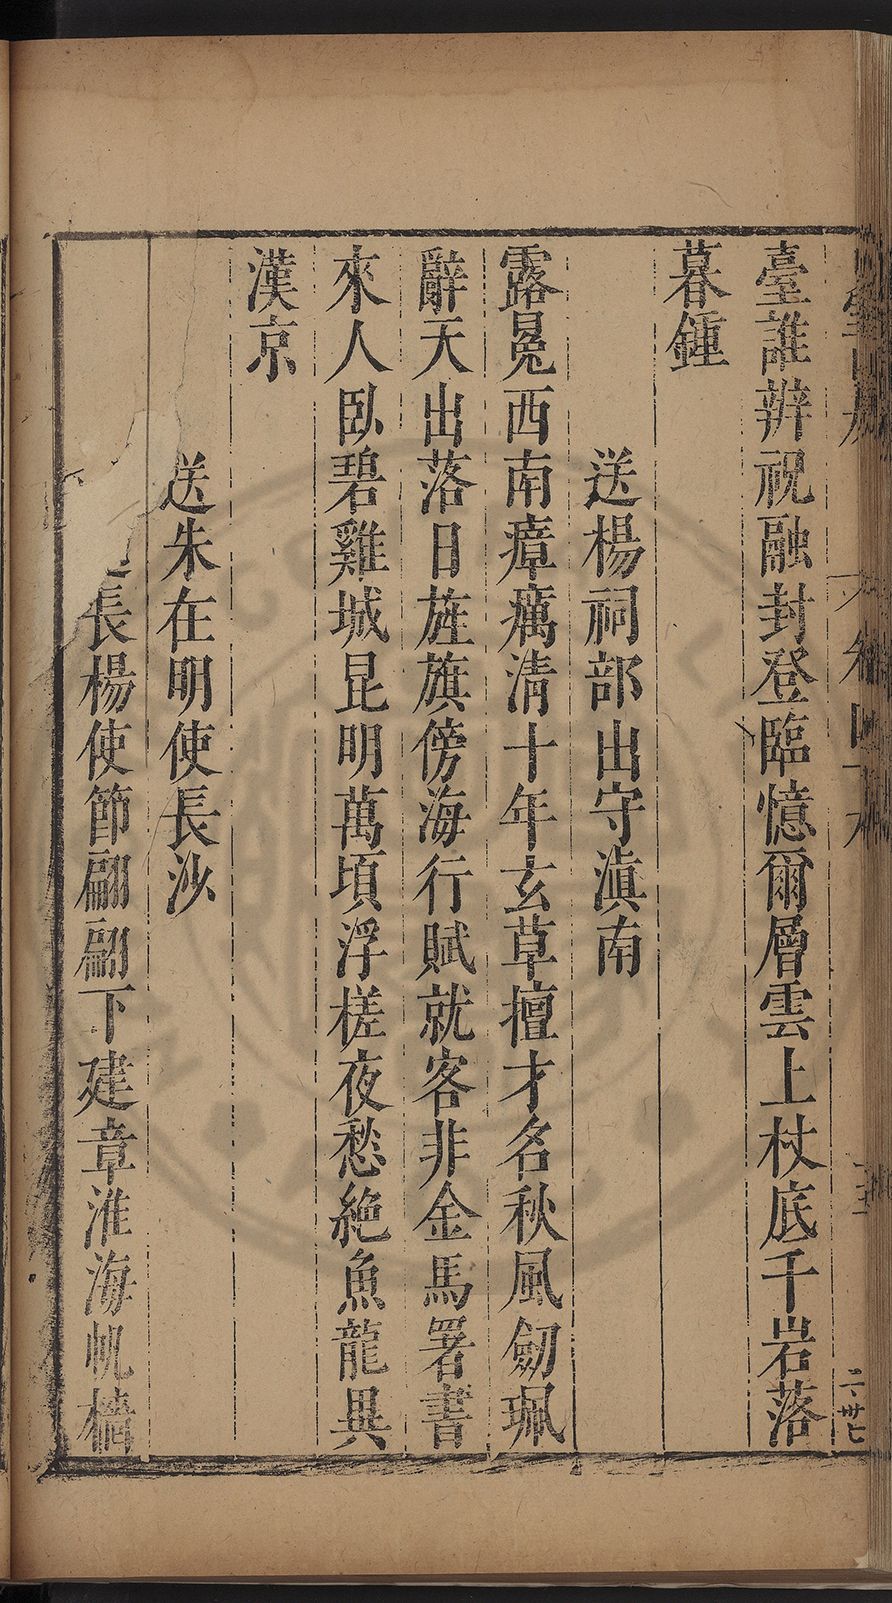 臺誰辨祝融封登臨憶爾層雲上杖底千岩落
暮鍾
送楊祠部出守滇南
露冕西南瘴癘清十年玄草擅才名秋風劒珮
辭天出落日旌旗傍海行賦就客非金馬署書
來人臥碧雞城昆明萬頃浮槎夜愁絶魚龍異
漢京
送朱在明使長沙
長楊使節翩翩下建章淮海帆檣